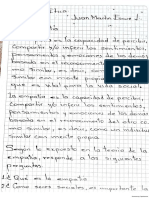 Etica
Juan Martin
La empatia es la capacidad de percibir,
compartir y/o inferir los sentimientos,
pensamientos y emociones de los demas,
basada en el reconocimiento del otro
como similar, es decir, como
similar con mente propia
para la vida social.
La empatia es la capacidad de percibir,
compartir y/o inferir los sentimientos,
pensamientos y emociones de los demas
basada en el reconocimiento del otro como
similar, es decir, como un individuo
similar con mente propia
Según lo expuesto en la teoria de la
empatia, responde a las siguientes
preguntas
1: Qué es la empatia
2: Como seres sociales, es importante la